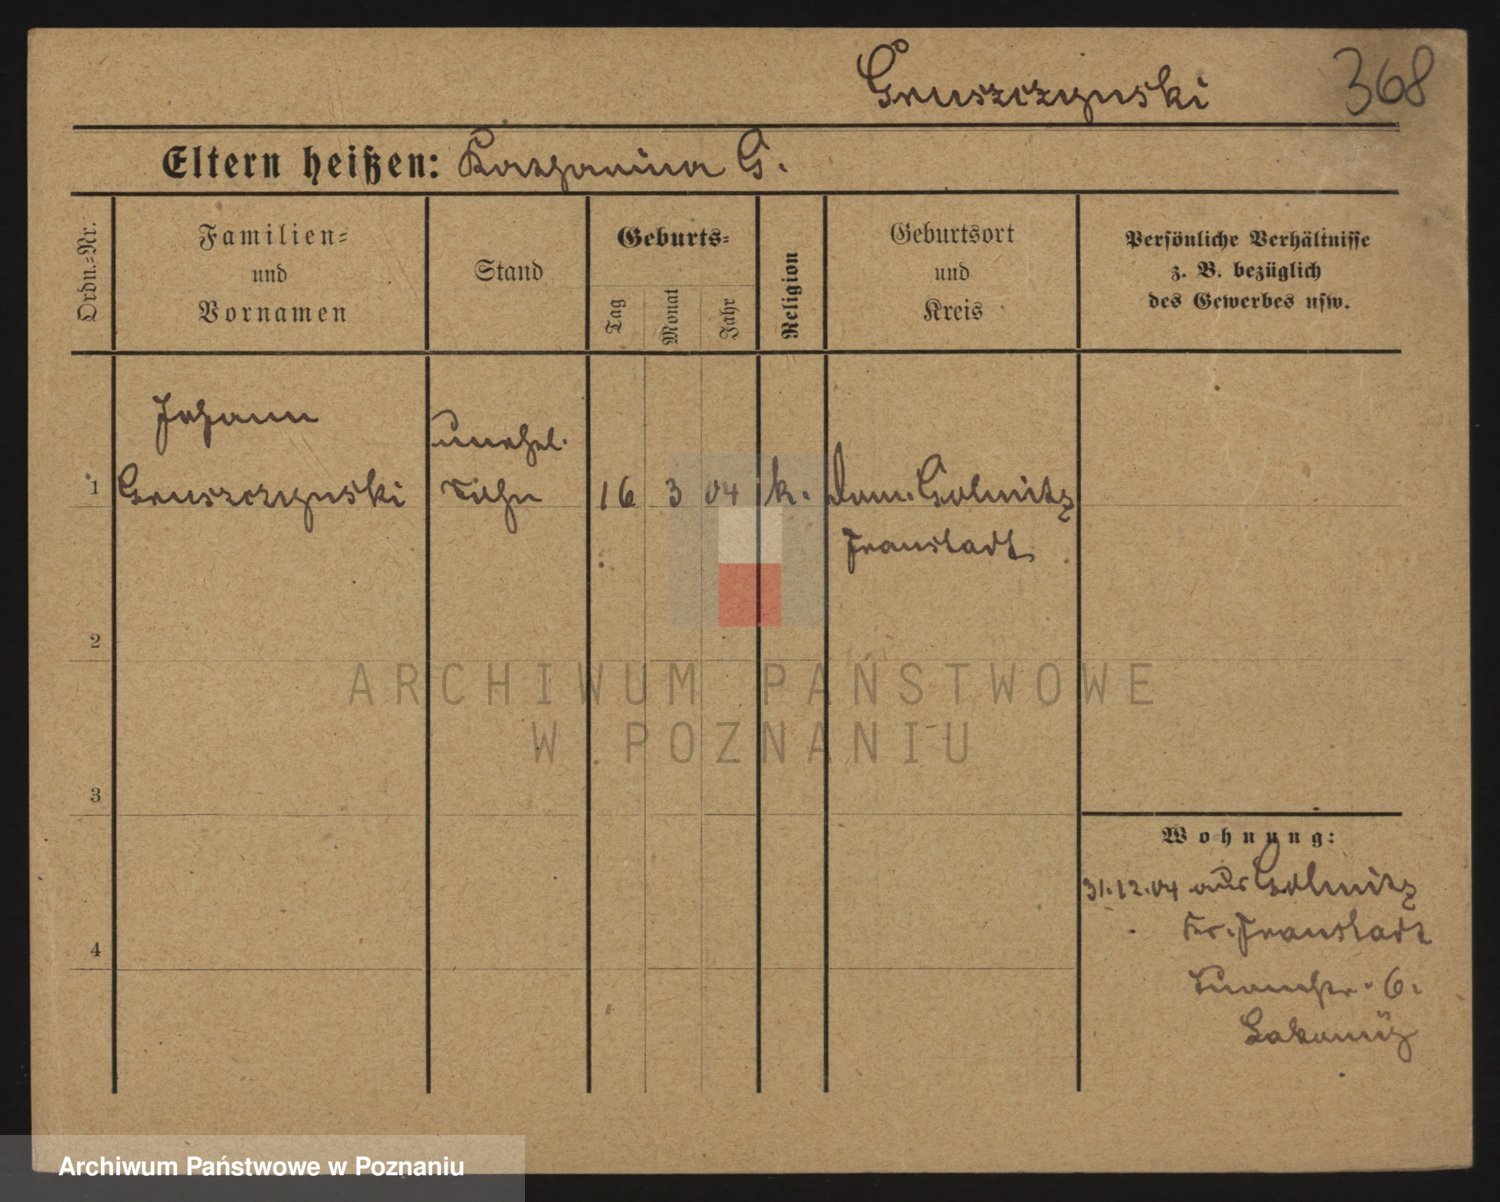 Gruszczynski 368
Eltern heißen: Katharina G.
Ordn.-Nr.
Familien-
und
Vornamen
Stand
Geburts-
Tag
Monat
Jahr
Religion
Geburtsort
und
Kreis
Persönliche Verhältnisse
z. B. bezüglich
des Gewerbes usw.
Johann
unehel.
1 Gruszczynski Sohn 16 3 04 k. Dom. Golmitz
Fraustadt
2
ARCHIWUM PAŃSTWOWE
W POZNANIU
3
Wohnung:
31.12.04 aus Golmitz
4
Kr. Fraustadt
6.
Archiwum Państwowe w Poznaniu